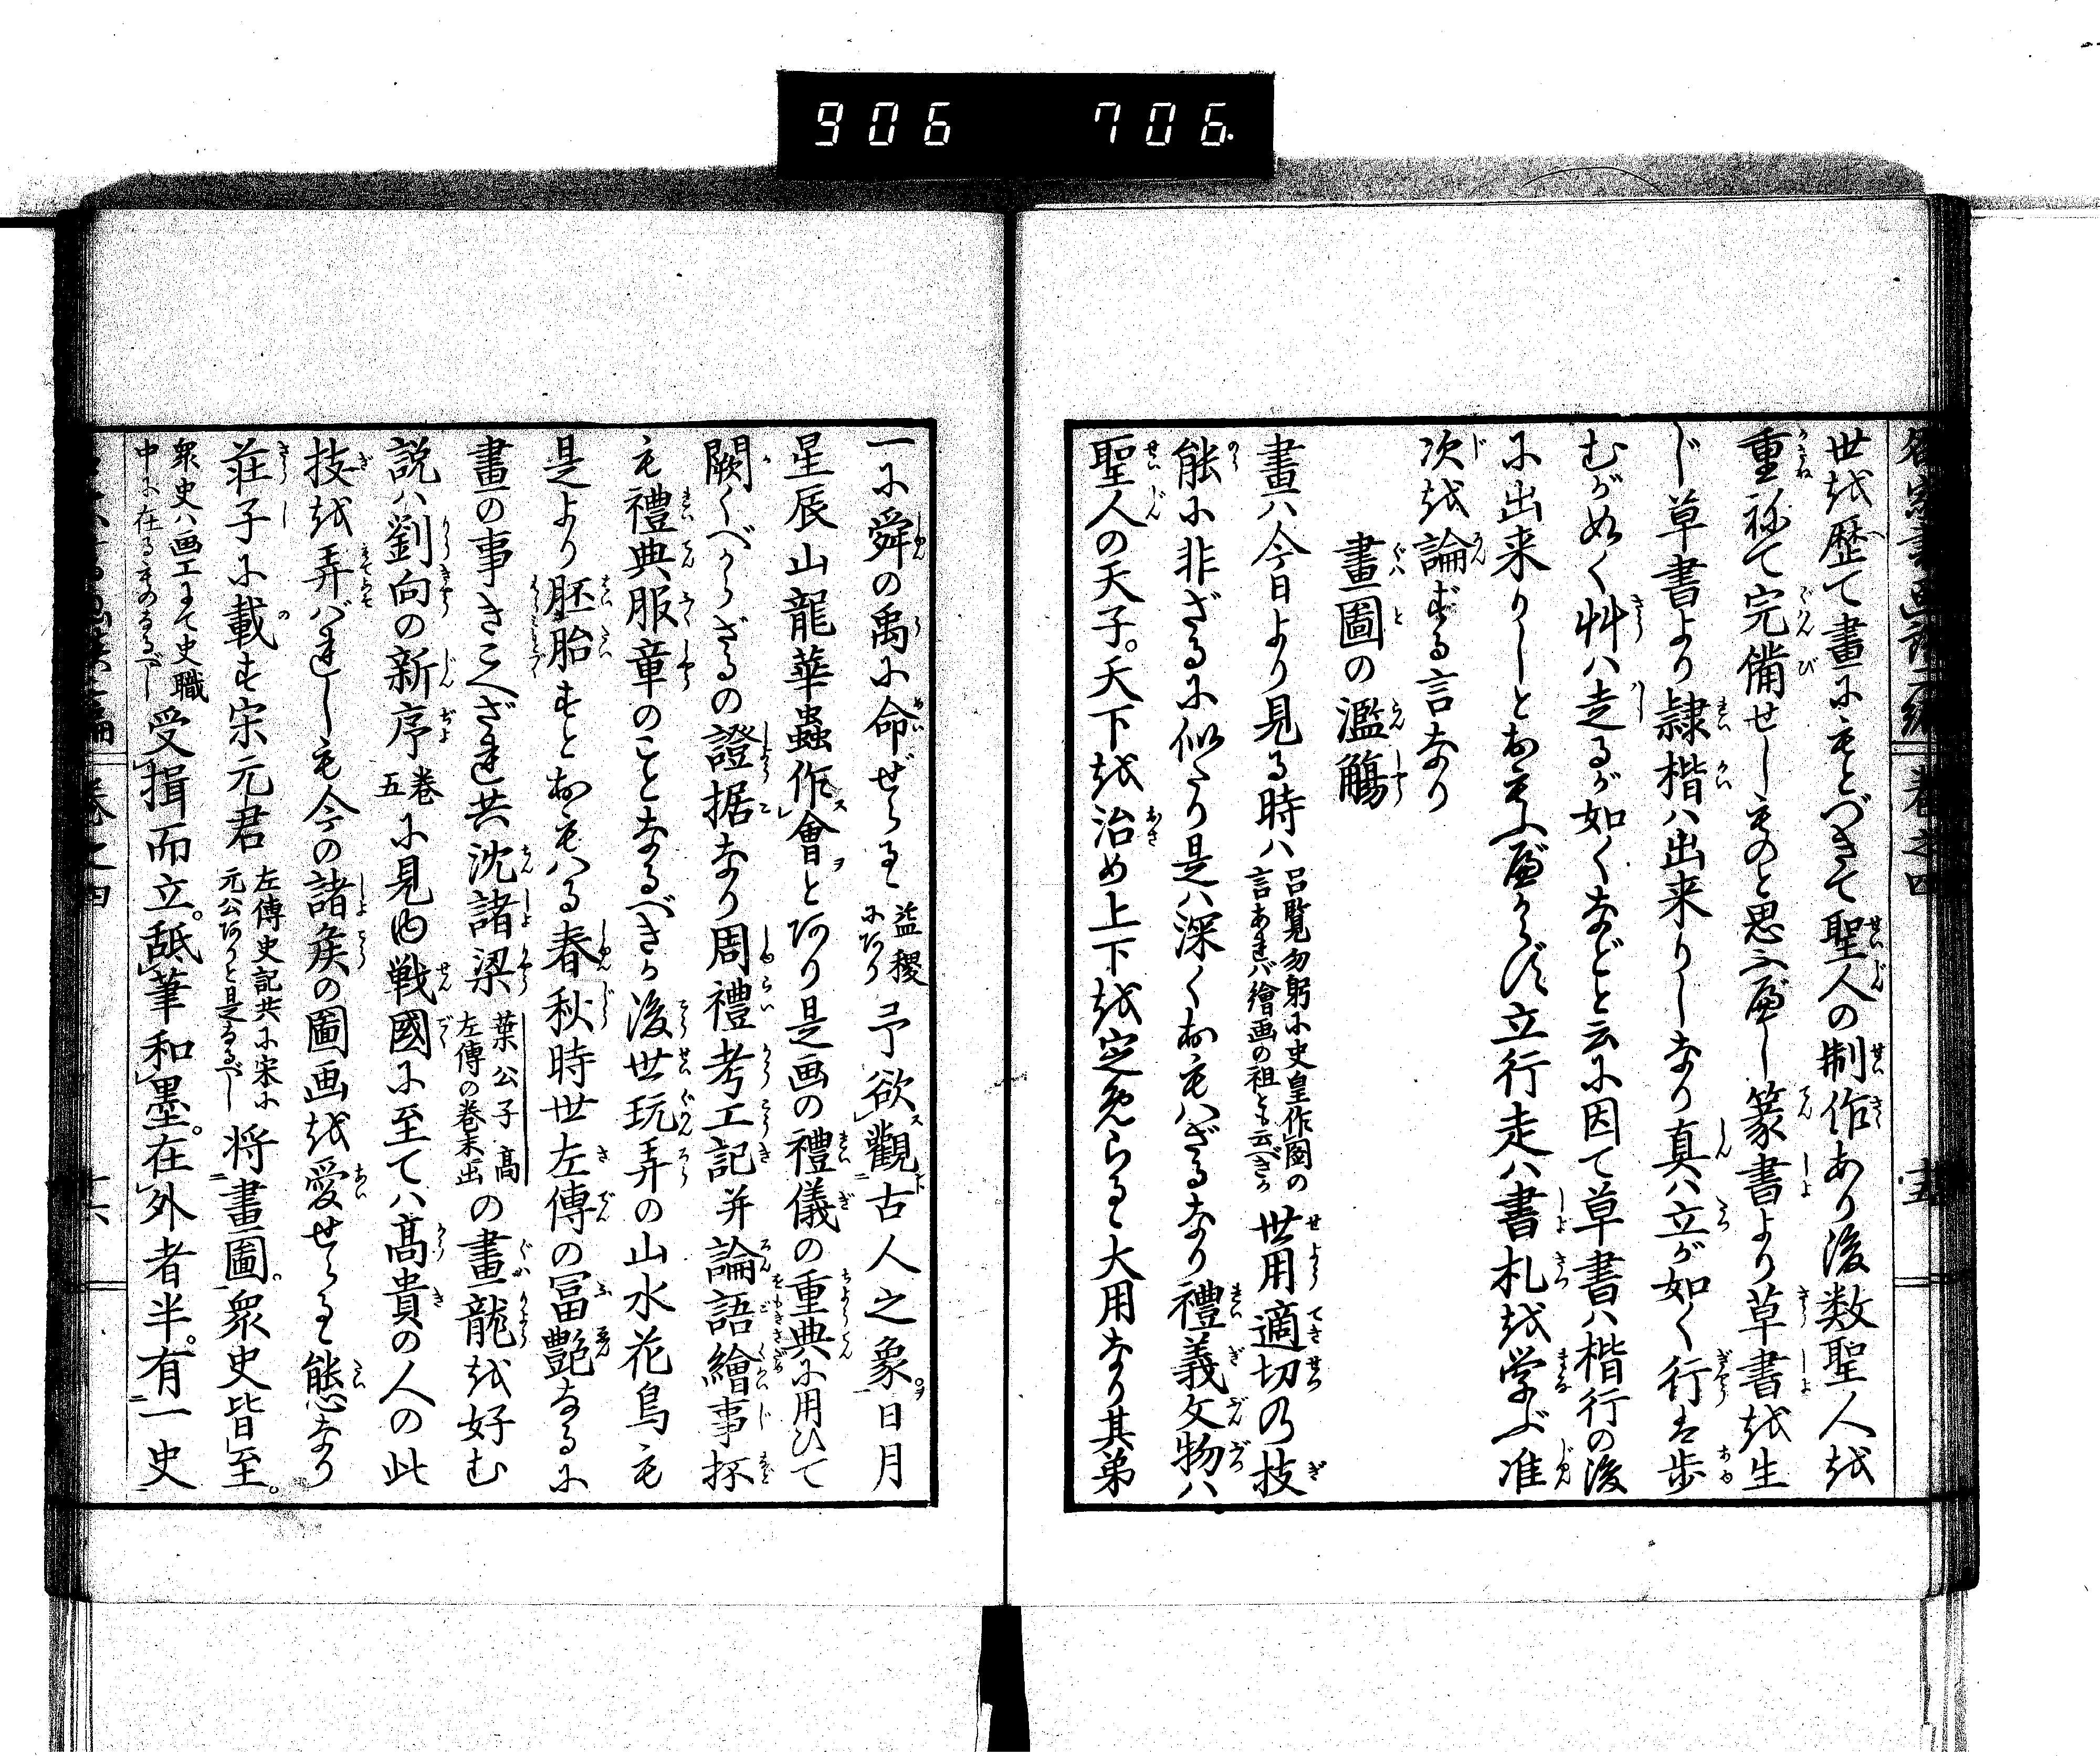 906 706.
世越歴て畫にもとづきて聖人の制作あり後数聖人越
重祢て完備せしものと思ふべし篆書より草書越生
じ草書より隷楷ハ出来りしなり真ハ立が如く行は歩
むがぬく艸ハ走るが如くなどと云に因て草書ハ楷行の後
に出来りしとおもふべからず立行走ハ書札越学ぶ准
次越論ずる言なり
畫圖の濫觴
畫ハ今日より見る時ハ
呂覧勿躬に史皇作圖の
言あれバ繪画の祖とも云べきか
世用適切の技
能に非ざるに似たり是ハ深くおもハざるなり禮義文物ハ
聖人の天子。天下越治め上下越定めらるゝ大用なり其弟
一に舜の禹に命ぜらる
益稷
にあり
予欲觀古人之象。日月
星辰山龍華蟲作會とあり是画の禮儀の重典に用ひて
闕くべからざるの證据なり周禮考工記并論語繪事抔
も禮典服章のことなるべきか後世玩弄の山水花鳥も
是より胚胎すとおもハる春秋時世左傳の冨艶なるに
畫の事きこへざれ共沈諸梁
葉公子高
左傳の巻末出
の畫龍越好む
説ハ劉向の新序
巻
五
に見ゆ戦國に至てハ髙貴の人の此
技越弄バれしも今の諸矦の圖画越愛せらるゝ態なり
荘子に載す宋元君
左傳史記共に宋に
元公ありと是なるべし
将畫圖。衆史皆至。
衆史ハ画工にて史職
中に在るものなるべし
受揖而立。舐筆和墨。在外者半。有一史